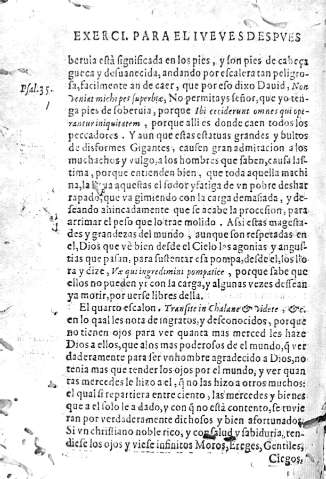 EXERCI. PARA EL IVEVES DESPVES
beruia está significada en los pies, y son pies de cabeça
gueca y desuanecida, andando por escalera tan peligro-
sa, facilmente an de caer, que por eso dixo Dauid, Non
Psal. 35.
veniat michi pes superbiæ, No permitays señor, que yo ten-
ga pies de soberuia, porque Ibi ceciderunt omnes qui ope-
rantur iniquitatem, porque alli es donde caen todos los
peccadores. Y aun que estas estatuas grandes y bultos
de disformes Gigantes, causen gran admiracion a los
muchachos y vulgo, a los hombres que saben, causa las-
tima, porque entienden bien, que toda aquella machi
na, la lleua aquestas el sudor y fatiga de vn pobre deshar
rapado, que va gimiendo con la carga demasiada, y de-
seando ahincadamente que se acabe la procesion, para
arrimar el peso que lo trae molido. Asi estas magesta-
des y grandezas del mundo, aunque son respetadas en
el, Dios que vè bien desde el Cielo los agonias y angus-
tias que pasan, para sustentar esa pompa, desde el, los llo
ra y dize, Væ qui ingredimini pompatice, porque sabe que
ellos no pueden yr con la carga, y algunas vezes dessean
ya morir, por uerse libres della.
El quarto escalon, Transite in Chalane & videte, &c.
en lo qual les nota de ingratos, y desconocidos, porque
no tienen ojos para ver quanta mas merced les haze
Dios a ellos, que a los mas poderosos de el mundo, q̃ ver
daderamente para ser vn hombre agradecido a Dios, no
tenia mas que tender los ojos por el mundo, y ver quan
tas mercedes le hizo a el, q̃ no las hizo a otros muchos:
el qual si repartiera entre ciento, las mercedes y bienes
que a el solo le a dado, y con q̃ no está contento, se tuuie
ran por verdaderamente dichosos y bien afortunados.
Si vn christiano noble rico, y con salud y sabiduria, ten-
diese los ojos y viese infinitos Moros, Ereges, Gentiles,
Ciegos,